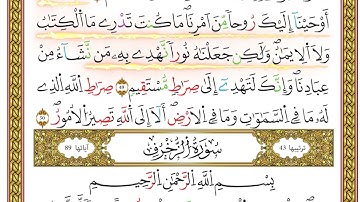 أَوْحَيْنَآ إِلَيْكَ رُوحًا مِّنَ اَمْرِنَا مَا كُنتَ تَدْرِے مَا اَ۬لْكِتَٰبُ
وَلَا اَ۬لِايمَٰنُ وَلَٰكِن جَعَلْنَٰهُ نُورًا نَّهْدِے بِهِۦ مَن نَّشَآءُ مِنْ
عِبَادِنَا وَإِنَّكَ لَتَهْدِےٓ إِلَىٰ صِرَٰطٖ مُّسْتَقِيمٖ 49 صِرَٰطِ اِ۬للَّهِ اِ۬لذِے
لَهُۥ مَا فِے اِ۬لسَّمَٰوَٰتِ وَمَا فِے اِ۬لَارْضِ أَلَآ إِلَى اَ۬للَّهِ تَصِيرُ اُ۬لُامُورُ 50
ترتيبها 43 سُورَةُ اُ۬لزُّخْرُفِ آياتها 89
بِسْمِ اِ۬للَّهِ اِ۬لرَّحْمَٰنِ اِ۬لرَّحِيمِ